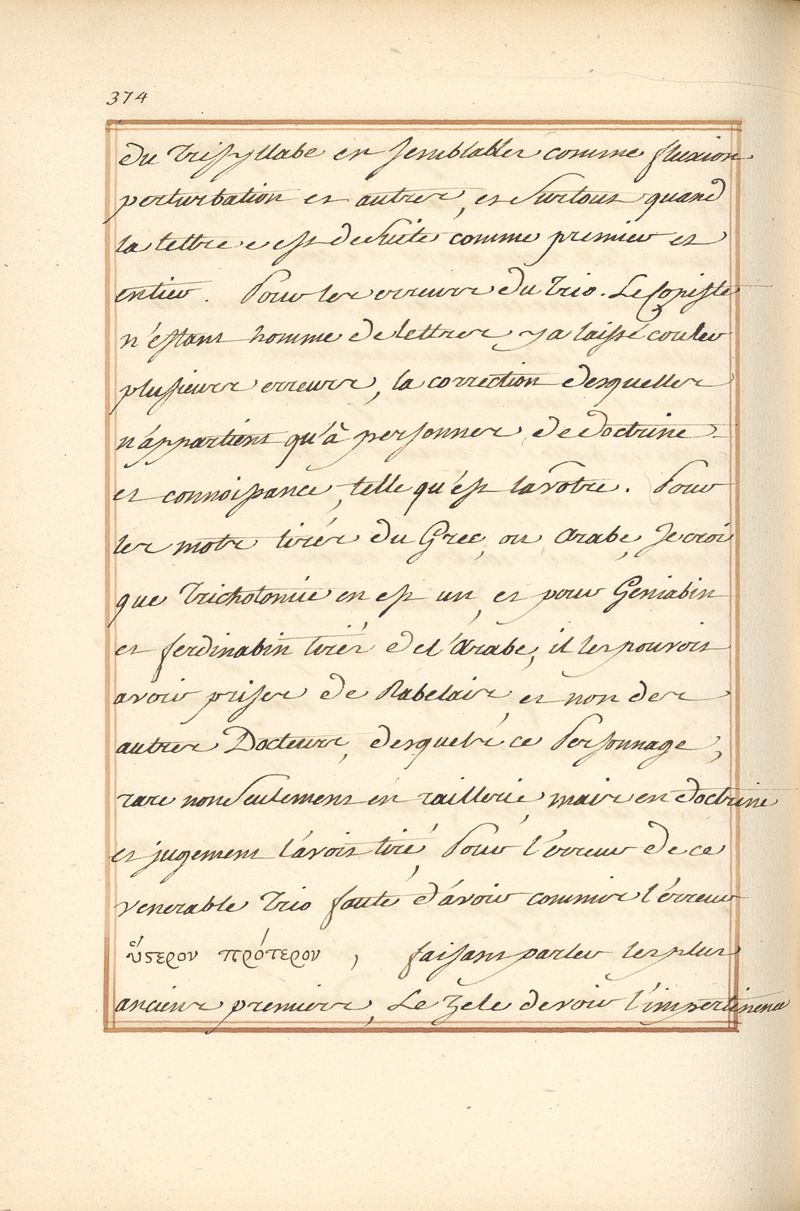 374
du Trissyllabe et semblables comme fluxion
perturbation et autres, et surtout quand
la lettre e est de suite comme premier et
entier. Pour les erreurs du Trio. Le Copiste
n'estant homme de lettres y a laissé couler
plusieurs erreurs, la correction desquelles
n'appartient qu'à personnes de doctrine
et connoissance, telle qu'est la vôtre. Pour
les mots tirés du Grec, ou Arabe, Je croi
que Trichotomie en est un, et pour Geniabin
et ferdinabin tirés de l'Arabe, il les pouvoit
avoir prises de Rabelais, et non des
autres Docteurs, desquels ce Personnage,
rare non seulement en raillerie, mais en doctrine
et jugement l'avoit tiré, Pour l'erreur de ce
venerable Trio faute d'avoir commis l'erreur
ὕςερον πρότερον, faisant parler les plus
anciens premiers, Le Zele de voir l'impertinence